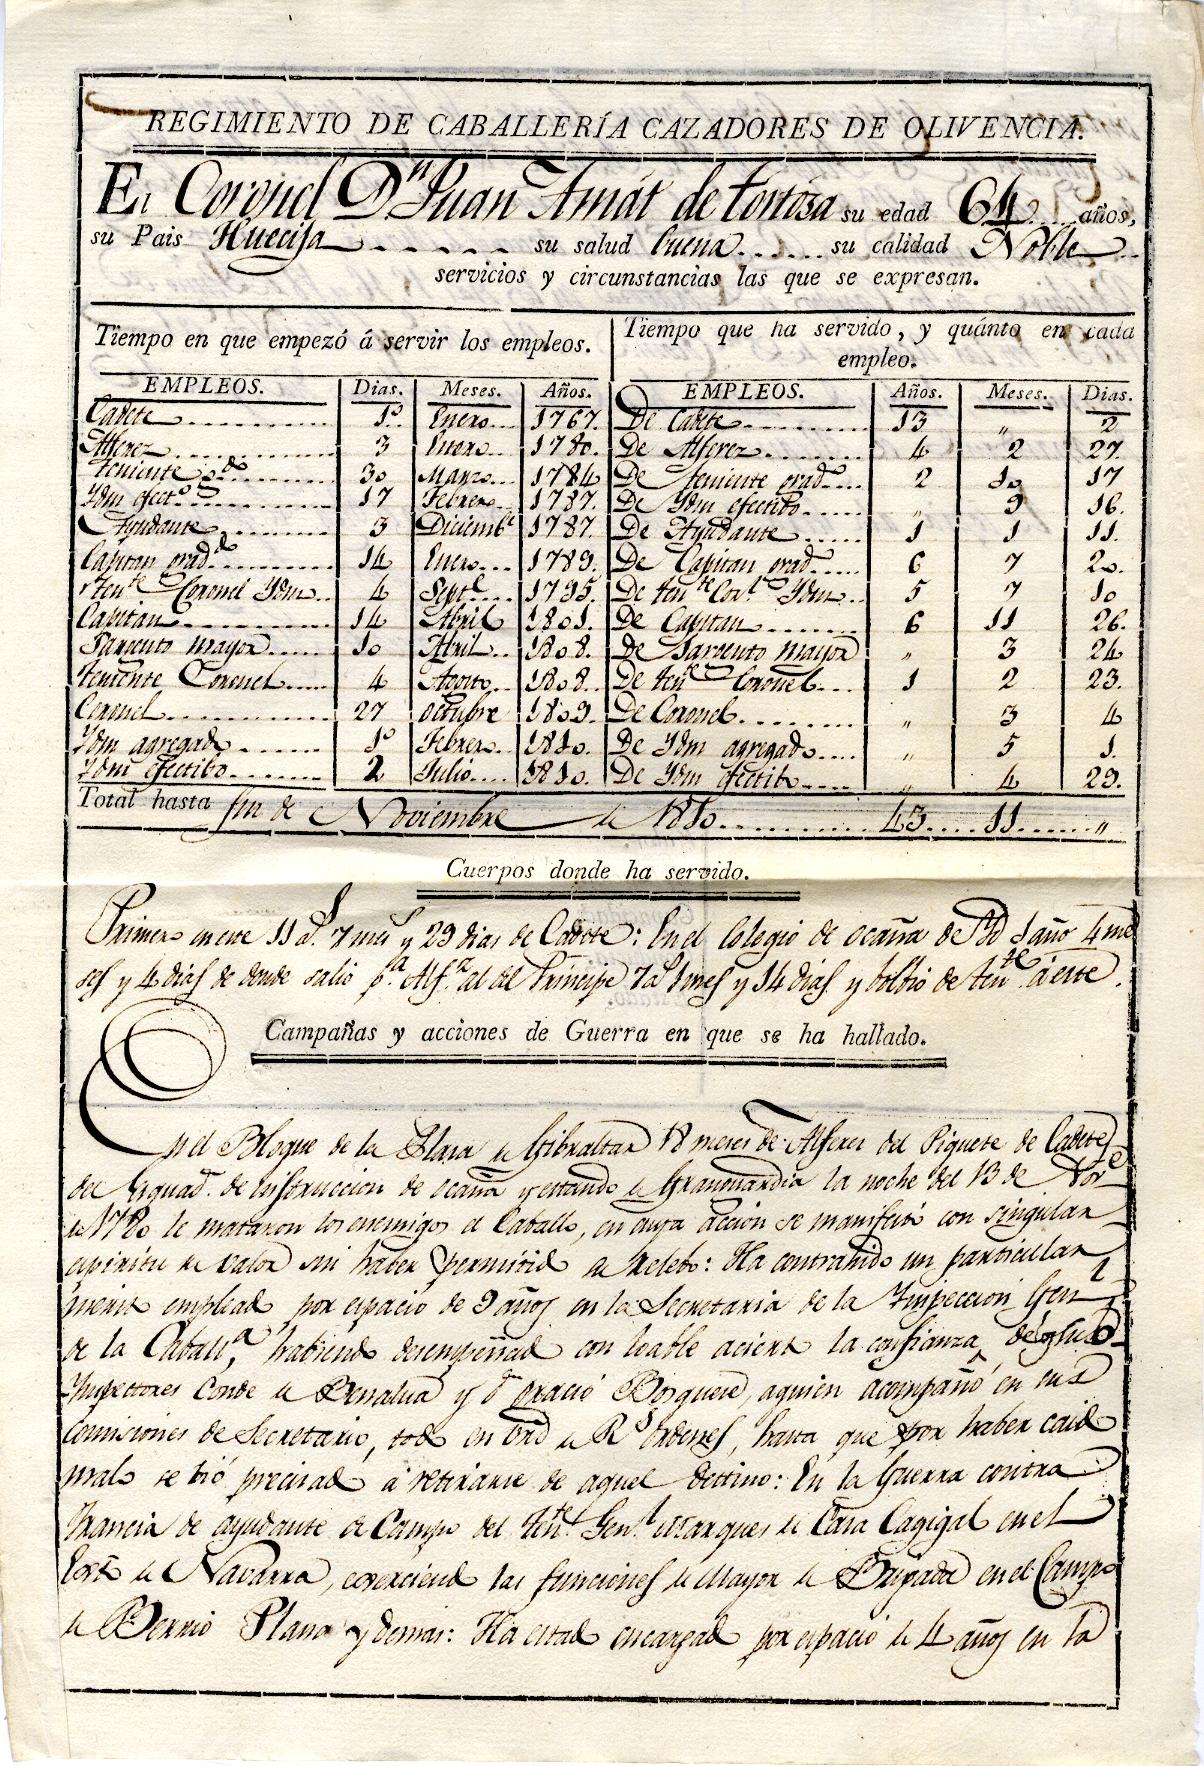 REGIMIENTO DE CABALLERÍA CAZADORES DE OLIVENCIA.
El Coronel Dn Juan Amát de tortosa su edad 64 años,
su Pais Huecija su salud buena su calidad Noble
servicios y circunstancias las que se expresan.
Tiempo en que empezó á servir los empleos. Tiempo que ha servido, y quánto en cada empleo.
EMPLEOS. Dias. Meses. Años. EMPLEOS. Años. Meses. Dias.
Cadete 1º Enero 1767. De Cadete 13 „ 2
Alferez 3 Enero 1780. De Alferez 4 2 27.
teniente gdo 30 Marzo 1784 De teniente grado 2 10 17
Ydm efecto 17 Febrero 1787. De Ydm efectibo „ 9 16.
Ayudante 3 Diciembe 1787. De Ayudante 1 1 11.
Capitan graddo 14 Enero 1789. De Capitan grado 6 7 20.
tente Coronel Ydm 4 Septe 1795. De tente Corl Ydm 5 7 10
Capitan 14 Abril 1801. De Capitan 6 11 26.
Sargento mayor 10 Abril 1808. De Sargento mayor „ 3 24
teniente Coronel 4 Agosto 1808. De tente Coronel 1 2 23.
Coronel 27 octubre 1809. De Coronel „ 3 4
Ydm agregado 1º Febrero 1810. De Ydm agregado „ 5 1.
Ydm efectibo 2 Julio 1810. De Ydm efectibo „ 4 29.
Total hasta fin de Noviembre de 1810 43 11 „
Cuerpos donde ha servido.
Primero en este 11 as. 7 mes y 29 dias de Cadete: En el Colegio de ocaña de Yd 1 año 4 me
ses y 4 dias de donde salio pa Alfz al del Principe 7 as 1 mes y 14 dias y bolbio de tente á este.
Campañas y acciones de Guerra en que se ha hallado.
En el Bloque de la Plaza de Gibraltar 18 meses de Alferez del Piquete de Cadetes
del Esquad. de instruccion de ocaña y estando de Granguardia la noche del 13 de Nove
de 1780 le mataron los enemigos el Caballo, en cuya accion se manifestó con singular
espiritu de valor sin haber permitido su relebo: Ha contrahido un particular
merito empleado por espacio de 9 años en la Secretaria de la Ynspeccion Genl
de la Caballa, habiendo desempeñado con loable acierto la confianza de los
Ynspectores Conde de Benalua y dn oracio Borguese, aquien acompañó en sus
Comisiones de Secretario, todo en Ord de Rs ordenes, hasta que por haber caido
malo se bió precisado a retirarse de aquel destino: En la Guerra contra
Francia de ayudante de Campo del tente Genl Marques de Casa Cagigal en el
Exto de Navarra, exerciendo las funciones de Mayor de Brigada en el Campo
de Berrio Plano y demas: Ha estado encargado por espacio de 4 años en la